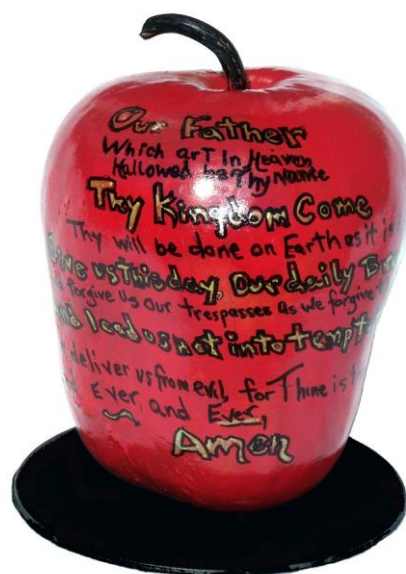 Our Father
Which art In Heaven
Hallowed be Thy Name
Thy Kingdom Come
Thy will be done on Earth as it is
Give us this day, Our daily
forgive us Our trespasses as we forgive
and lead us not into
deliver us from evil, for Thine is
Ever and Ever,
Amen